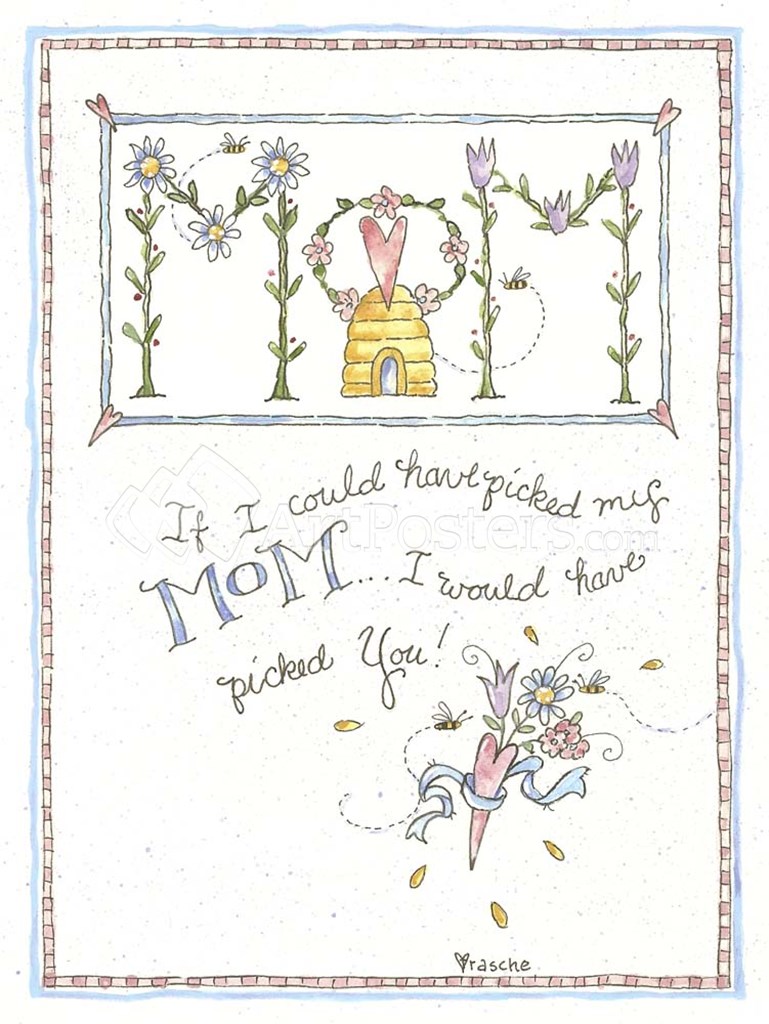 MOM
If I could have picked my
MOM... I would have
picked You!
ArtPosters.com
rasche